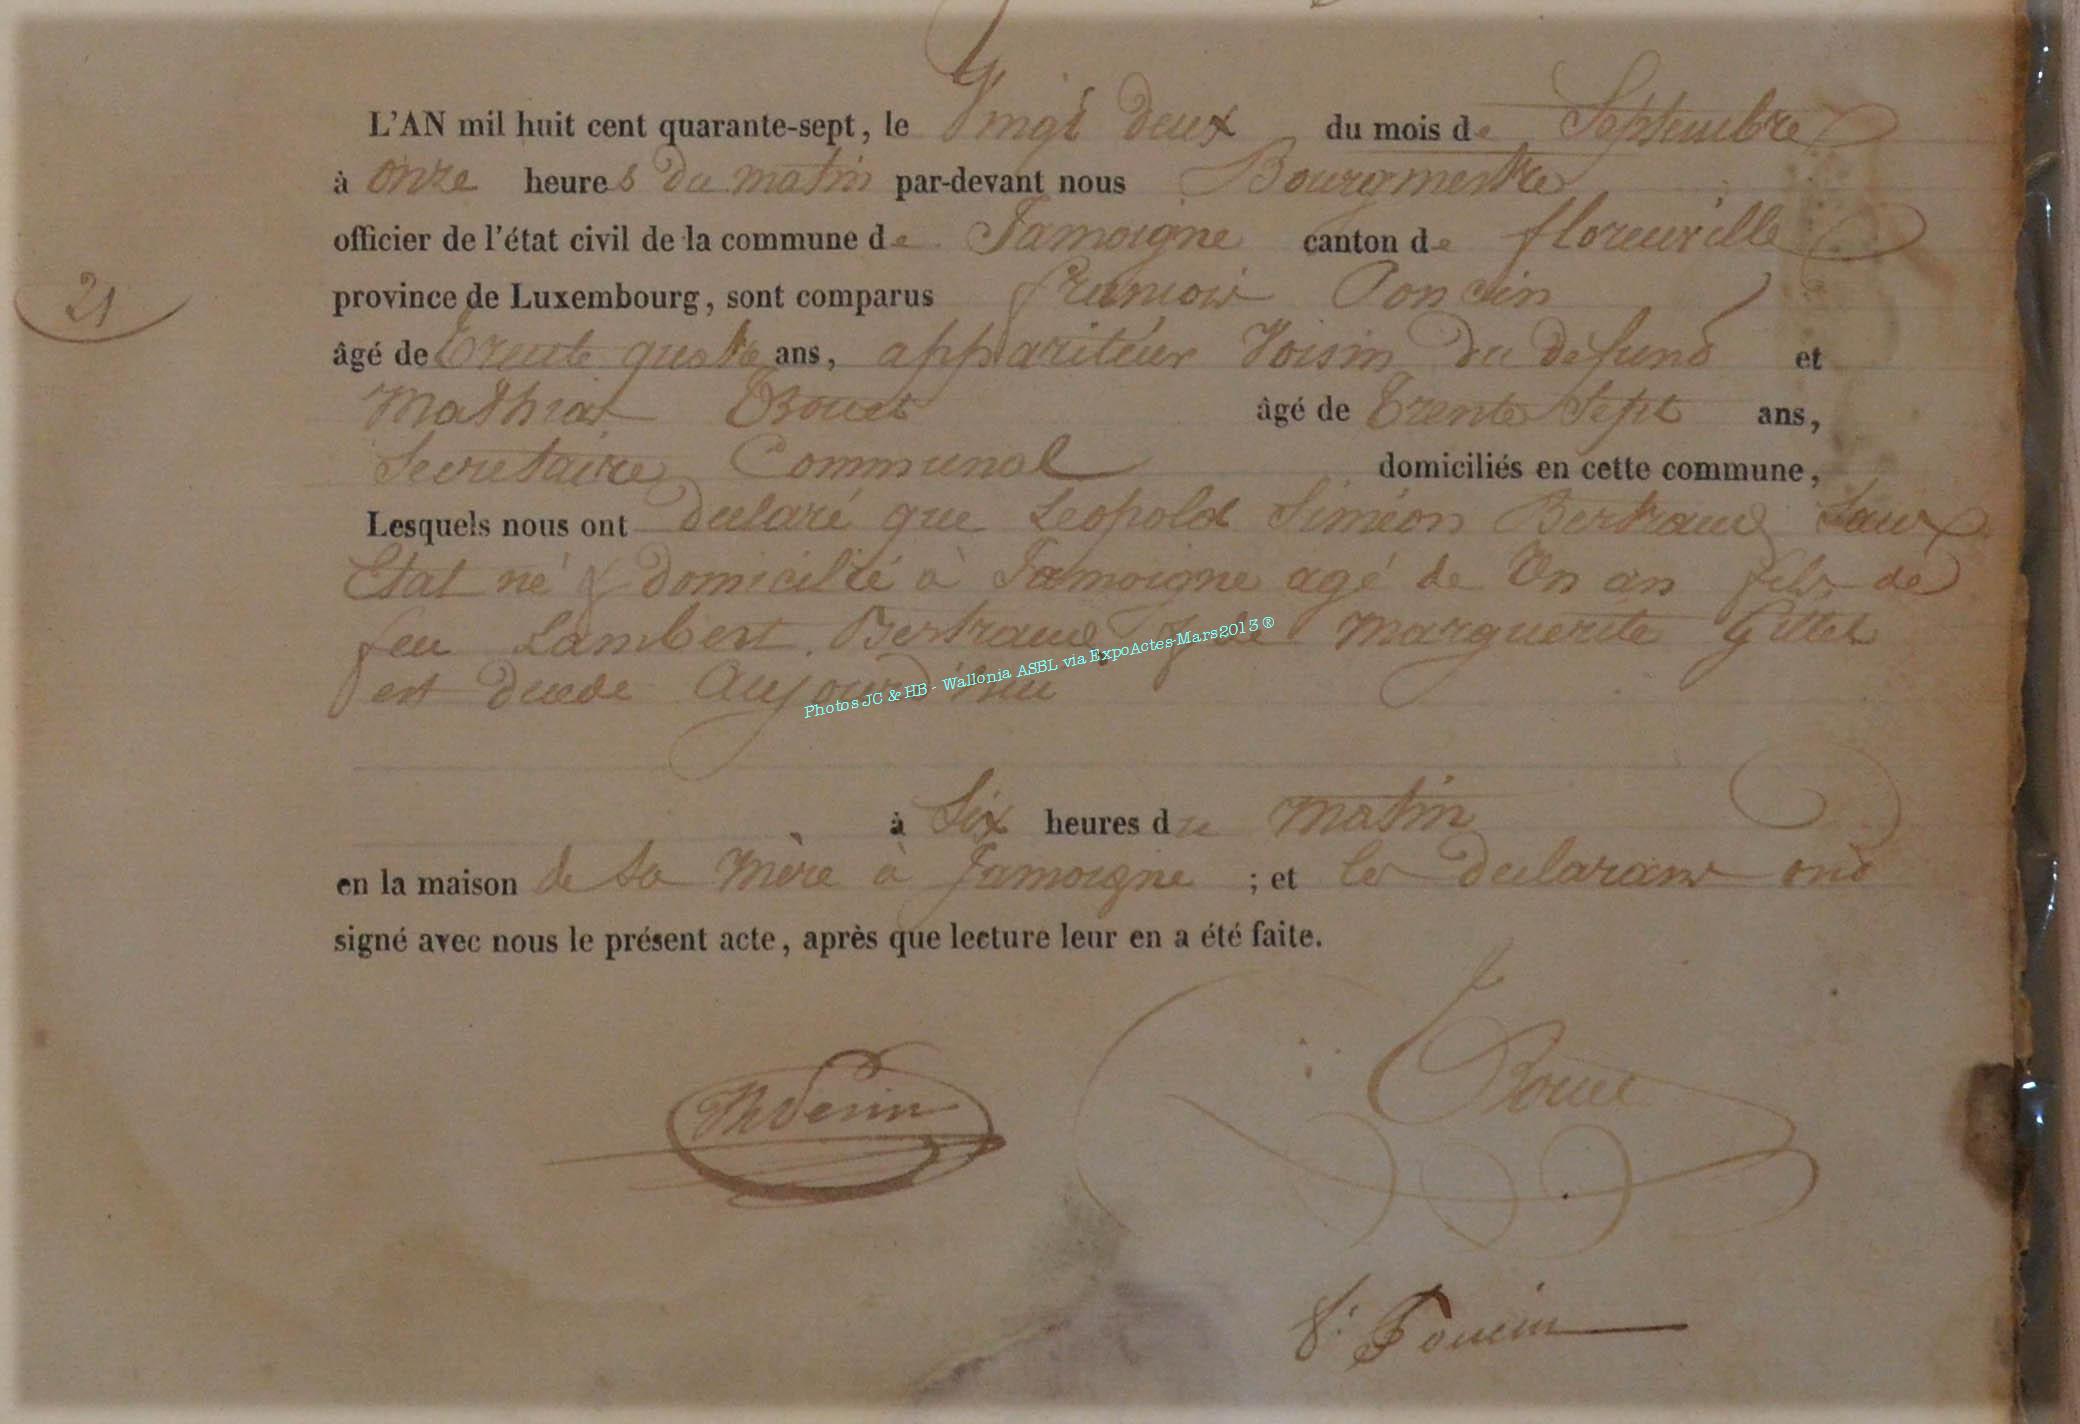 L'AN mil huit cent quarante-sept, le Vingt deux du mois de Septembre
à onze heures du matin par-devant nous Bourgmestre
officier de l'état civil de la commune de Jamoigne canton de florenville
21
province de Luxembourg, sont comparus françois Poncin
âgé de trente quatre ans, appariteur Voisin du defund et
Mathias Bouet âgé de trente sept ans,
Secretaire Communal domiciliés en cette commune,
Lesquels nous ont declaré que Leopold Siméon Bertrand Sans
Etat né & domicilié à Jamoigne agé de un an fils de
feu Lambert Bertrand & de Marguerite Gillet
est decedé aujourd'hui
à Six heures du matin
en la maison de sa mère à Jamoigne ; et les declarans ond
signé avec nous le présent acte, après que lecture leur en a été faite.
Bouet
f: Poncin
Photos JC & HB - Wallonia ASBL via ExpoActes-Mars2013 ®